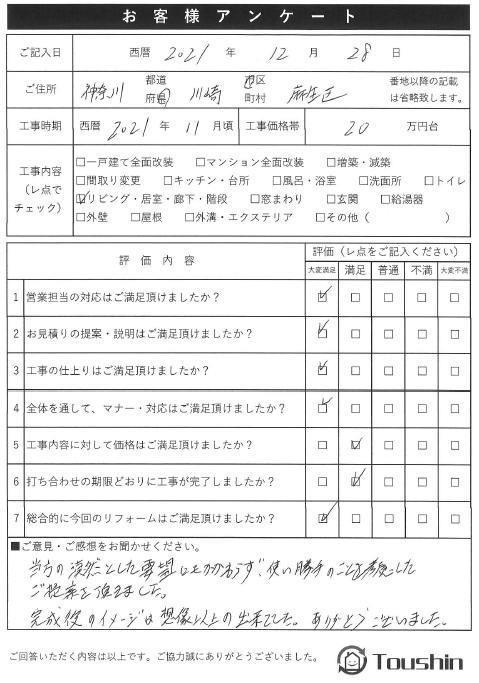 お客様アンケート
ご記入日 西暦 2021 年 12 月 28 日
ご住所 神奈川 都道府県 川崎 市区町村 麻生区 番地以降の記載は省略致します。
工事時期 西暦 2021 年 11 月頃 工事価格帯 20 万円台
工事内容（レ点でチェック）
□一戸建て全面改装 □マンション全面改装 □増築・減築
□間取り変更 □キッチン・台所 □風呂・浴室 □洗面所 □トイレ
☑リビング・居室・廊下・階段 □窓まわり □玄関 □給湯器
□外壁 □屋根 □外溝・エクステリア □その他（ ）
評価内容 評価（レ点をご記入ください）
大変満足 満足 普通 不満 大変不満
1 営業担当の対応はご満足頂けましたか？ ☑ □ □ □ □
2 お見積りの提案・説明はご満足頂けましたか？ ☑ □ □ □ □
3 工事の仕上りはご満足頂けましたか？ ☑ □ □ □ □
4 全体を通して、マナー・対応はご満足頂けましたか？ ☑ □ □ □ □
5 工事内容に対して価格はご満足頂けましたか？ □ ☑ □ □ □
6 打ち合わせの期限どおりに工事が完了しましたか？ □ ☑ □ □ □
7 総合的に今回のリフォームはご満足頂けましたか？ ☑ □ □ □ □
■ご意見・ご感想をお聞かせください。
当方の漠然とした要望にもかかわらず、使い勝手のことを考慮した
ご提案を頂きました。
完成後のイメージは想像以上の出来でした。ありがとうございました。
ご回答いただく内容は以上です。ご協力誠にありがとうございました。
Toushin